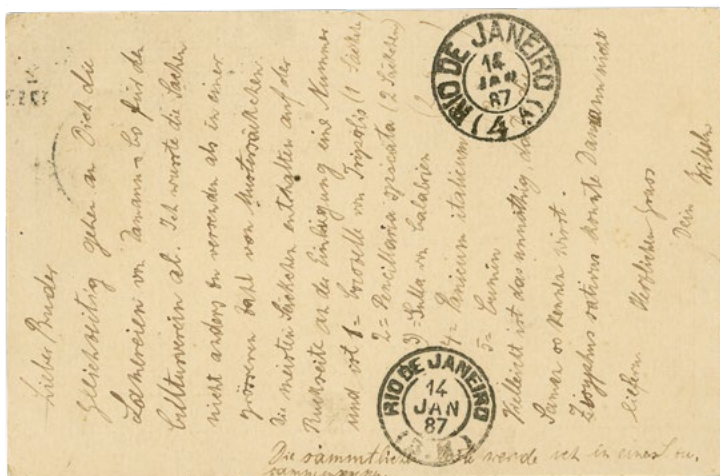 Lieber Bruder
Gleichzeitig gehen an Dich die
Sämereien von Damann & Co für den
Culturverein ab. Ich wusste die Sachen
nicht anders zu versenden als in einer
grösseren Zahl von Mustersäckchen.
Die meisten Säckchen enthalten auf der
Rückseite an der Einbiegung eine Nummer
und ist 1 = Grosselle von Tripolis (1 Säckchen)
2 = Penicillaria spicata (2 Säckchen)
3 = Sulla von Calabrien
4 = Panicum italicum
5 = Cumin
Vielleicht ist das unnöthig da
Samen zu kennen
Zizyphus sativus konnte Damann nicht
liefern. Herzlichen Gruss
Dein Wilhelm
Die sämmtlichen werde ich in einer
RIO DE JANEIRO
14
JAN
87
4
RIO DE JANEIRO
14
JAN
87